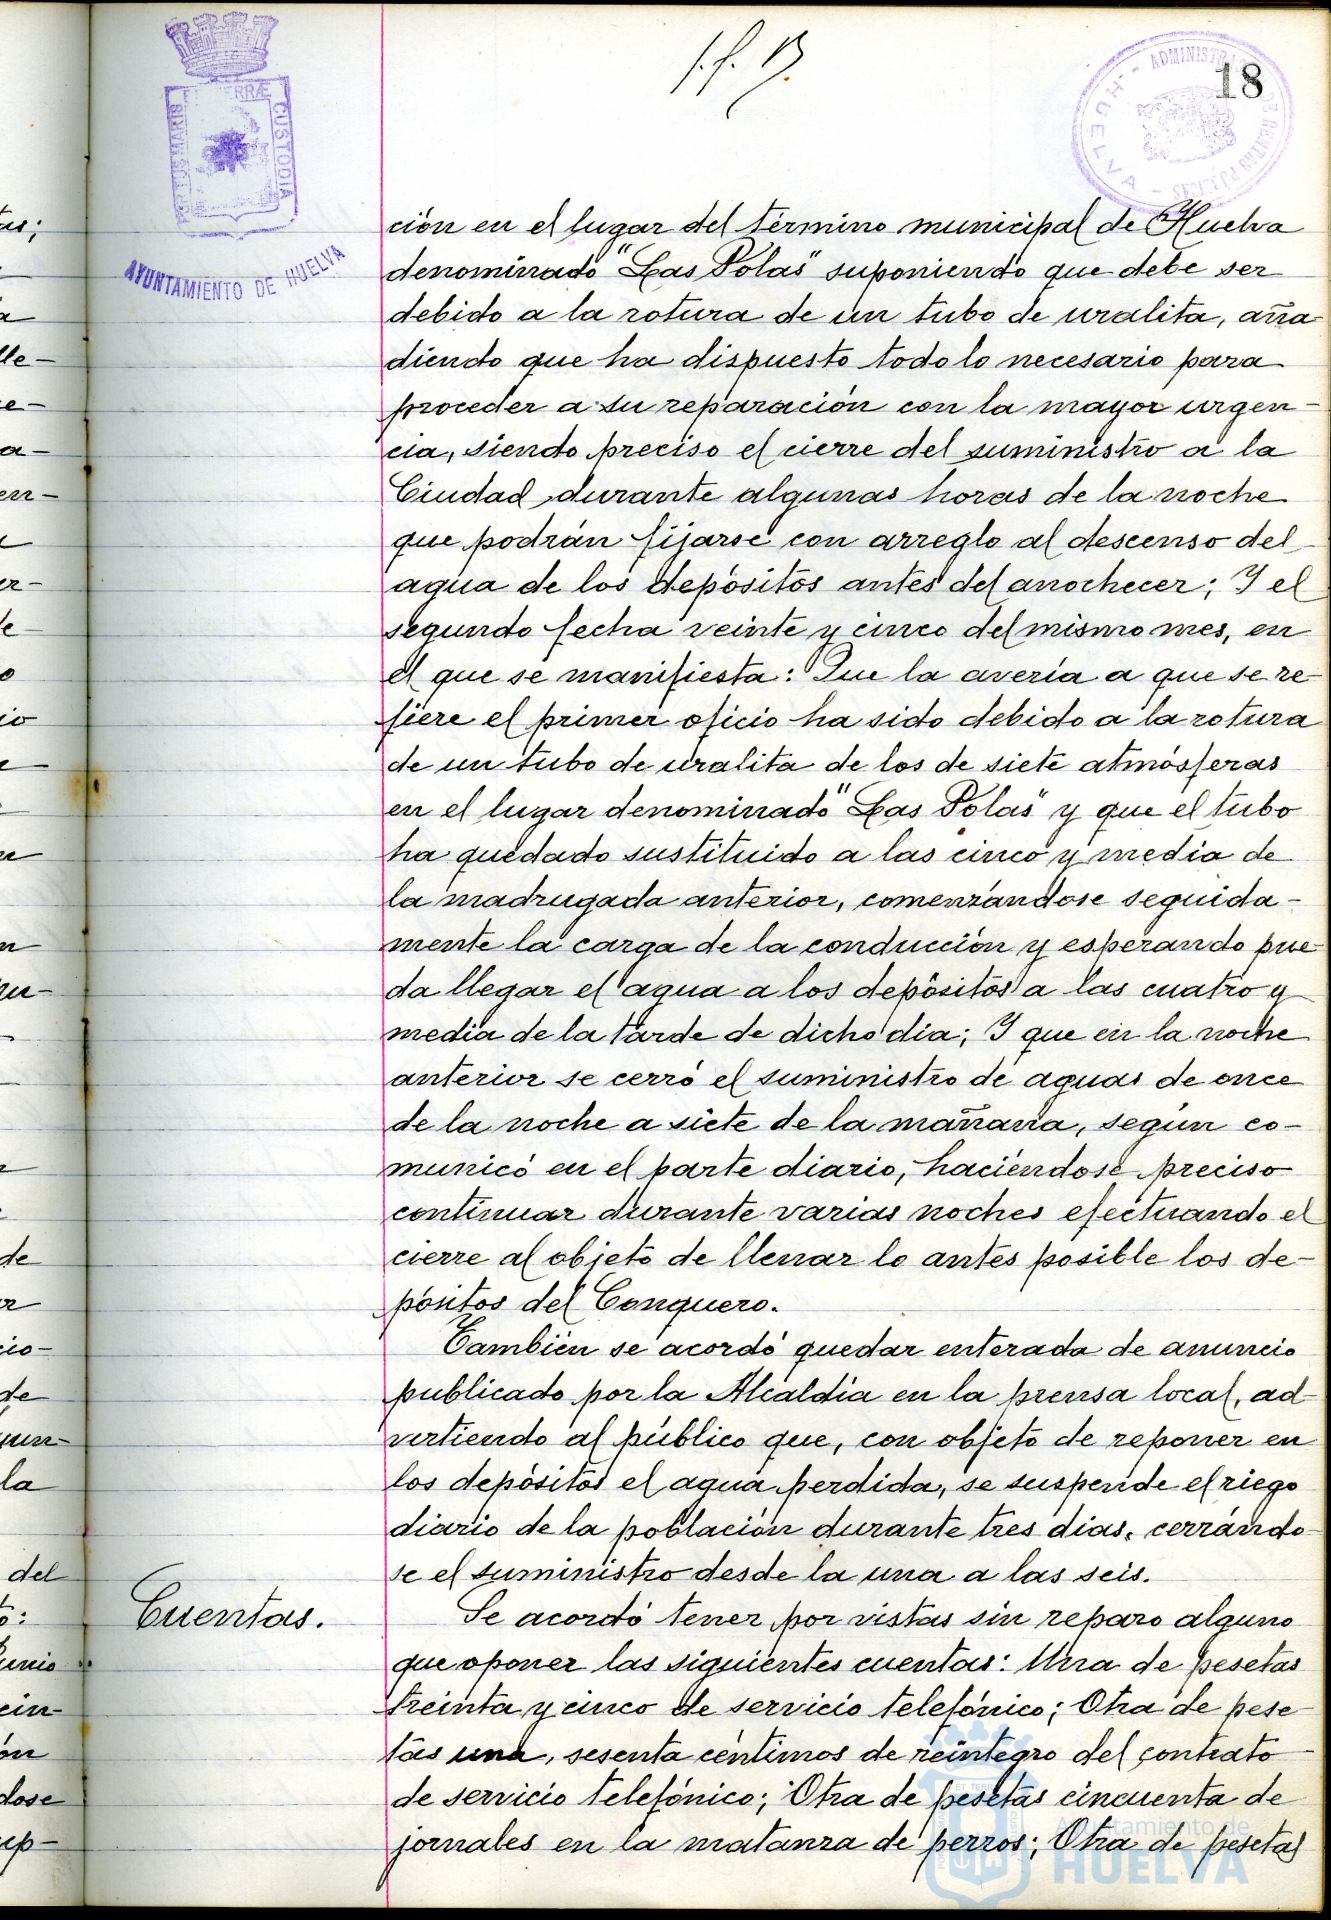 18
PORTUS MARIS ET TERRÆ CUSTODIA
AYUNTAMIENTO DE HUELVA
ADMINISTRACIÓN DE RENTAS PÚBLICAS
- HUELVA -
ción en el lugar del término municipal de Huelva
denominado "Las Polas" suponiendo que debe ser
debido a la rotura de un tubo de uralita, aña-
diendo que ha dispuesto todo lo necesario para
proceder a su reparación con la mayor urgen-
cia, siendo preciso el cierre del suministro a la
Ciudad durante algunas horas de la noche
que podrán fijarse con arreglo al descenso del
agua de los depósitos antes del anochecer; Y el
segundo fecha veinte y cinco del mismo mes, en
el que se manifiesta: Que la avería a que se re-
fiere el primer oficio ha sido debido a la rotura
de un tubo de uralita de los de siete atmósferas
en el lugar denominado "Las Polas" y que el tubo
ha quedado sustituido a las cinco y media de
la madrugada anterior, comenzándose seguida-
mente la carga de la conducción y esperando pue-
da llegar el agua a los depósitos a las cuatro y
media de la tarde de dicho dia; Y que en la noche
anterior se cerró el suministro de aguas de once
de la noche a siete de la mañana, según co-
municó en el parte diario, haciéndose preciso
continuar durante varias noches efectuando el
cierre al objeto de llenar lo antes posible los de-
pósitos del Conquero.
También se acordó quedar enterada de anuncio
publicado por la Alcaldía en la prensa local, ad-
virtiendo al público que, con objeto de reponer en
los depósitos el agua perdida, se suspende el riego
diario de la población durante tres dias, cerrándo-
se el suministro desde la una a las seis.
Cuentas.
Se acordó tener por vistas sin reparo alguno
que oponer las siguientes cuentas: Una de pesetas
treinta y cinco de servicio telefónico; Otra de pese-
tas una, sesenta céntimos de reintegro del contrato
de servicio telefónico; Otra de pesetas cincuenta de
jornales en la matanza de perros; Otra de pesetas
Ayuntamiento de
HUELVA